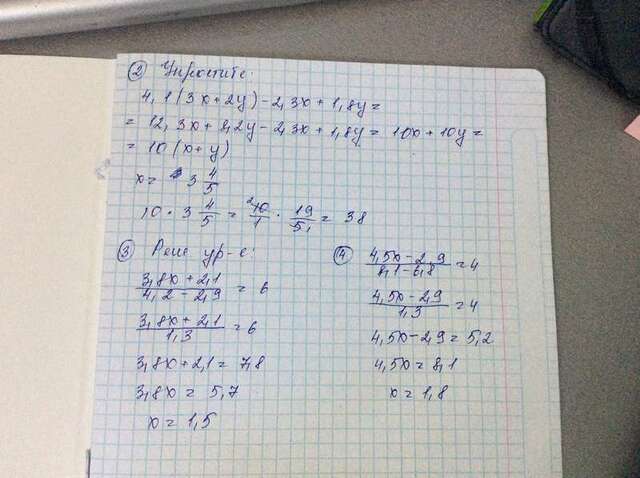 ② Упростите:
4,1(3x+2y)-2,3x+1,8y=
= 12,3x+8,2y-2,3x+1,8y= 10x+10y=
= 10(x+y)
x= 3 4/5
10 · 3 4/5 = 10/1 · 19/5 = 38
③ Реше ур-е:
(3,8x+2,1)/(4,2-2,9) = 6
(3,8x+2,1)/1,3 = 6
3,8x+2,1= 7,8
3,8x = 5,7
x= 1,5
④ (4,5x-2,9)/(8,1-6,8) =4
(4,5x-2,9)/1,3 =4
4,5x-2,9=5,2
4,5x=8,1
x=1,8